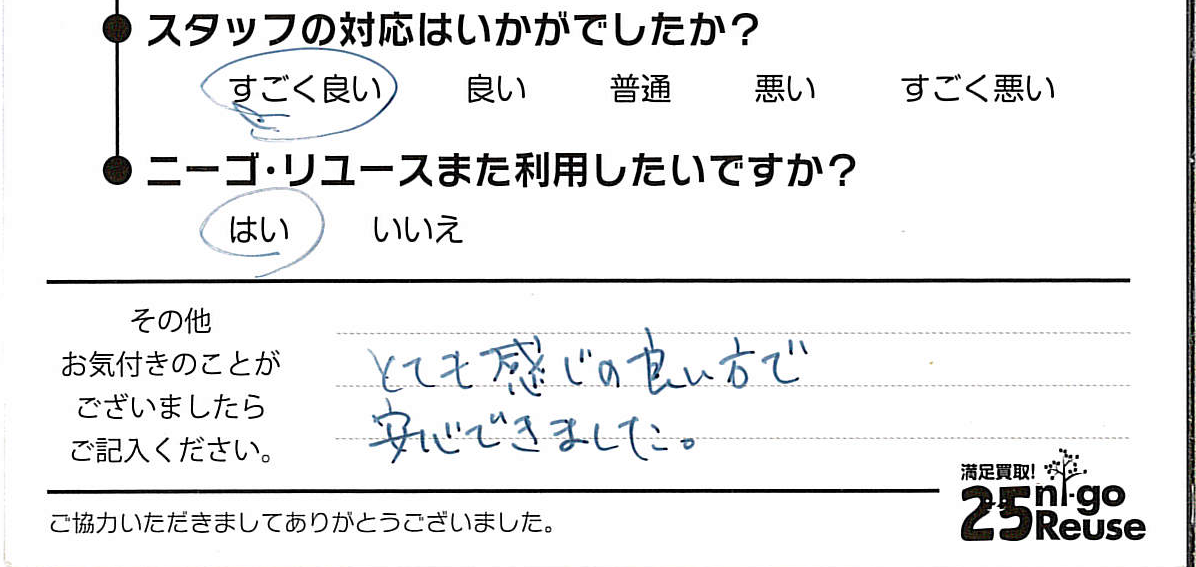 ● スタッフの対応はいかがでしたか？
すごく良い 良い 普通 悪い すごく悪い
● ニーゴ・リユースまた利用したいですか？
はい いいえ
その他
お気付きのことが
ございましたら
ご記入ください。
とても感じの良い方で
安心できました。
満足買取!
25 ni-go
Reuse
ご協力いただきましてありがとうございました。